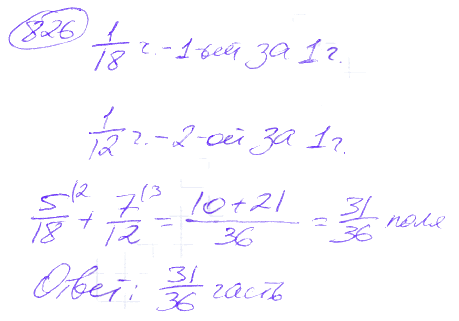 826
1/18 г. - 1-ый за 1 г.
1/12 г. - 2-ой за 1 г.
5/18 (2 + 7/12 (3 = (10+21)/36 = 31/36 поля
Ответ: 31/36 часть